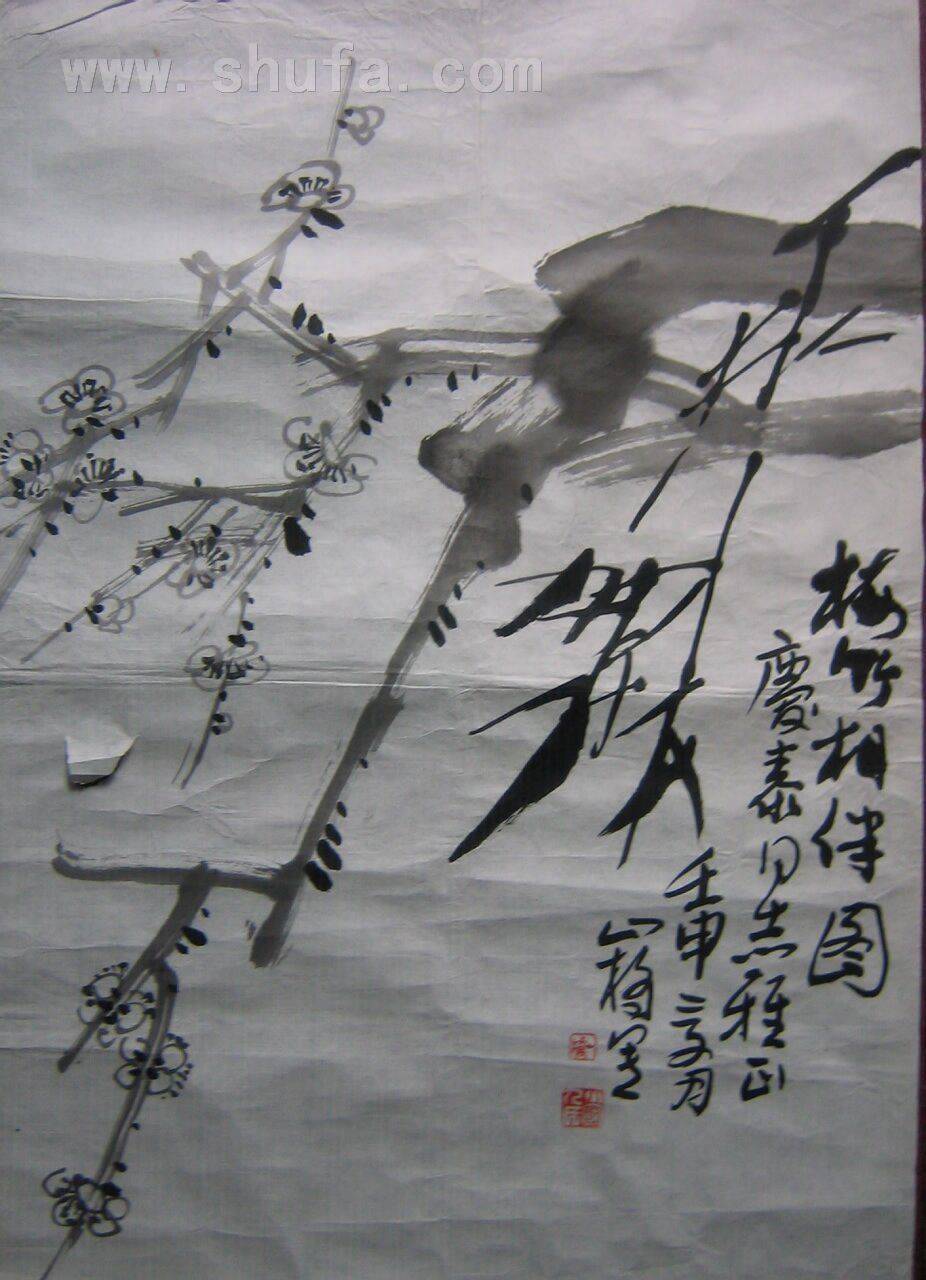 www.shufa.com
梅竹相伴图
慶泰同志雅正
壬申三月
山梅写